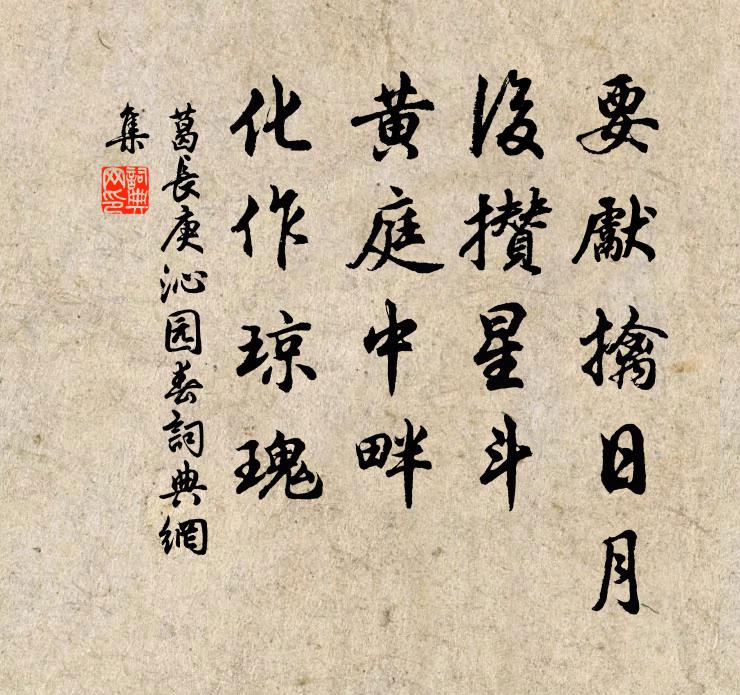 要獻擒日月
後攢星斗
黄庭中畔
化作琼瑰
葛長庚沁园春詞典網
集
詞典
网印